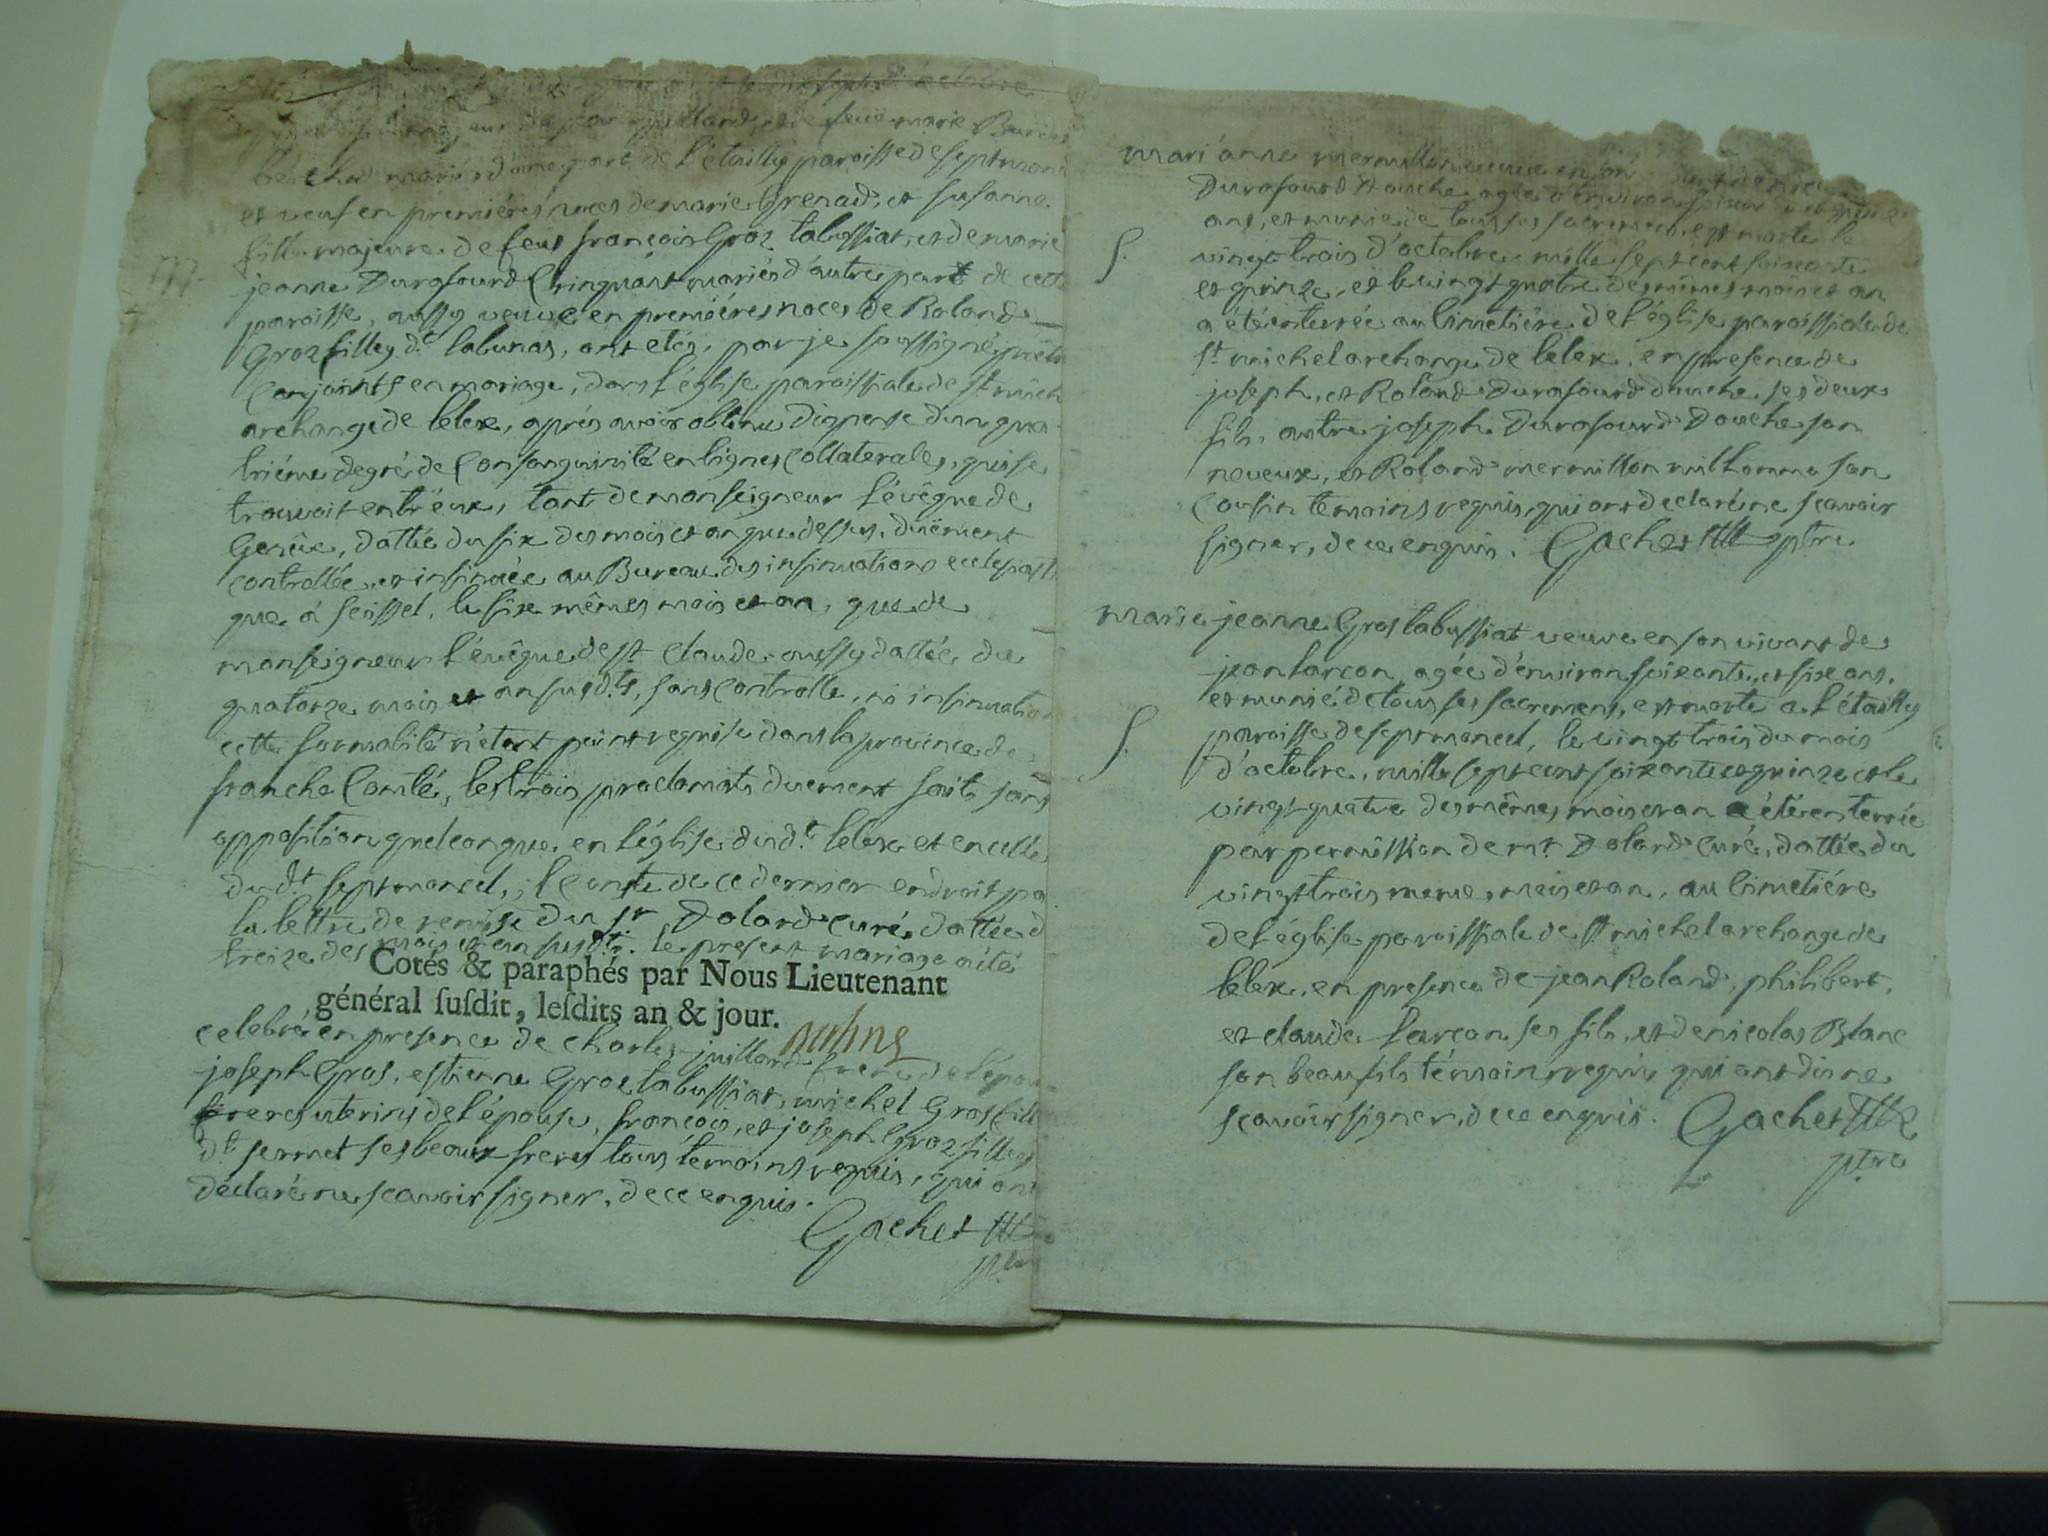 le dixsept d'octobre
feüe marie
mariés d'une part de l'étailly paroisse de septmon
et veuf en premiéres noces de marie Grenard, et susanne
fille majeure de feus françois Groz tabussiat, et de marie
jeanne Durafourd Chinquant mariés d'autre part de cett
m.
paroisse, aussy veuve en premiéres noces de Roland
Groz filley dt. labunas, ont etés, par je soussigné prêtr
Conjoints en mariage, dans l'église paroissiale de st. mich
archange de lelex, aprés avoir obtenu dispense d'un qua-
triéme degré de Consanguinité en lignes Collaterales, qui se
trouvoit entr'eux, tant de monseigneur l'évêque de
Genêve, dattée du six des mois et an que dessus, duëment
controllée, et insinuée au Bureau des insinuations eclesiasti
que à seissel, le six mêmes mois et an, que de
monseigneur l'évêque de st. Claude aussy dattée du
quatorze mois et an susd.ts, sans Controlle, ni insinuation
cette formalité n'étant point requise dans la province de
franche Comté, les trois proclamats duement faits sans
opposition quelconque, en l'église dudt. lelex et en celle
dudt. septmoncel, ; Conste de ce dernier endroit pa
la lettre de remise du sr. Dolard Curé, dattée d
treize des mois et an susdts. le present mariage a été
Cotés & paraphés par Nous Lieutenant
général susdit, lesdits an & jour.
celebré en presence de Charles juillard frere de l'epou
joseph Gros, estienne Groz tabussiat, michel Gros fill
freres uterins de l'épouse, françois, et joseph Groz filley
dt. sermet ses beaux freres tous témoins requis, qui ont
déclaré ne scavoir signer, de ce enquis.
Gachet
ptre
mari'anne mermillon veuve en son
Durafourd Douche agée d'environ soixante
ans, et munie de tous ses sacremens, est morte le
S.
vingt trois d'octobre mille sept cent soixante
et quinze, et le vingt quatre des mêmes mois et an
a été enterrée au Cimetiére de l'église paroissiale de
st. michel archange de lelex, en presence de
joseph, et Roland Durafourd douche, ses deux
fils, autre joseph Durafourd Douche son
neveux, et Roland mermillon milhomme son
Cousin temoins requis, qui ont declaré ne scavoir
signer, de ce enquis. Gachet ptre
marie jeanne Gros tabussiat veuve en son vivant de
jean larcon, agée d'environ soixante, et six ans,
et munié de tous ses sacremens, est morte a l'étailly
S.
paroisse de septmoncel, le vingt trois du mois
d'octobre, mille sept cent soixante et quinze et le
vingt quatre des mêmes mois et an a été enterrée
par permission de mr. Dolard Curé, dattée du
vingt trois meme, mois et an, au Cimetiére
de l'église paroissiale de st michel archange de
lelex, en presence de jean Roland, philibert,
et claude larcon ses fils, et de nicolas Blanc
son beau fils témoins requis, qui ont dis ne
scavoir signer, de ce enquis. Gachet
ptre